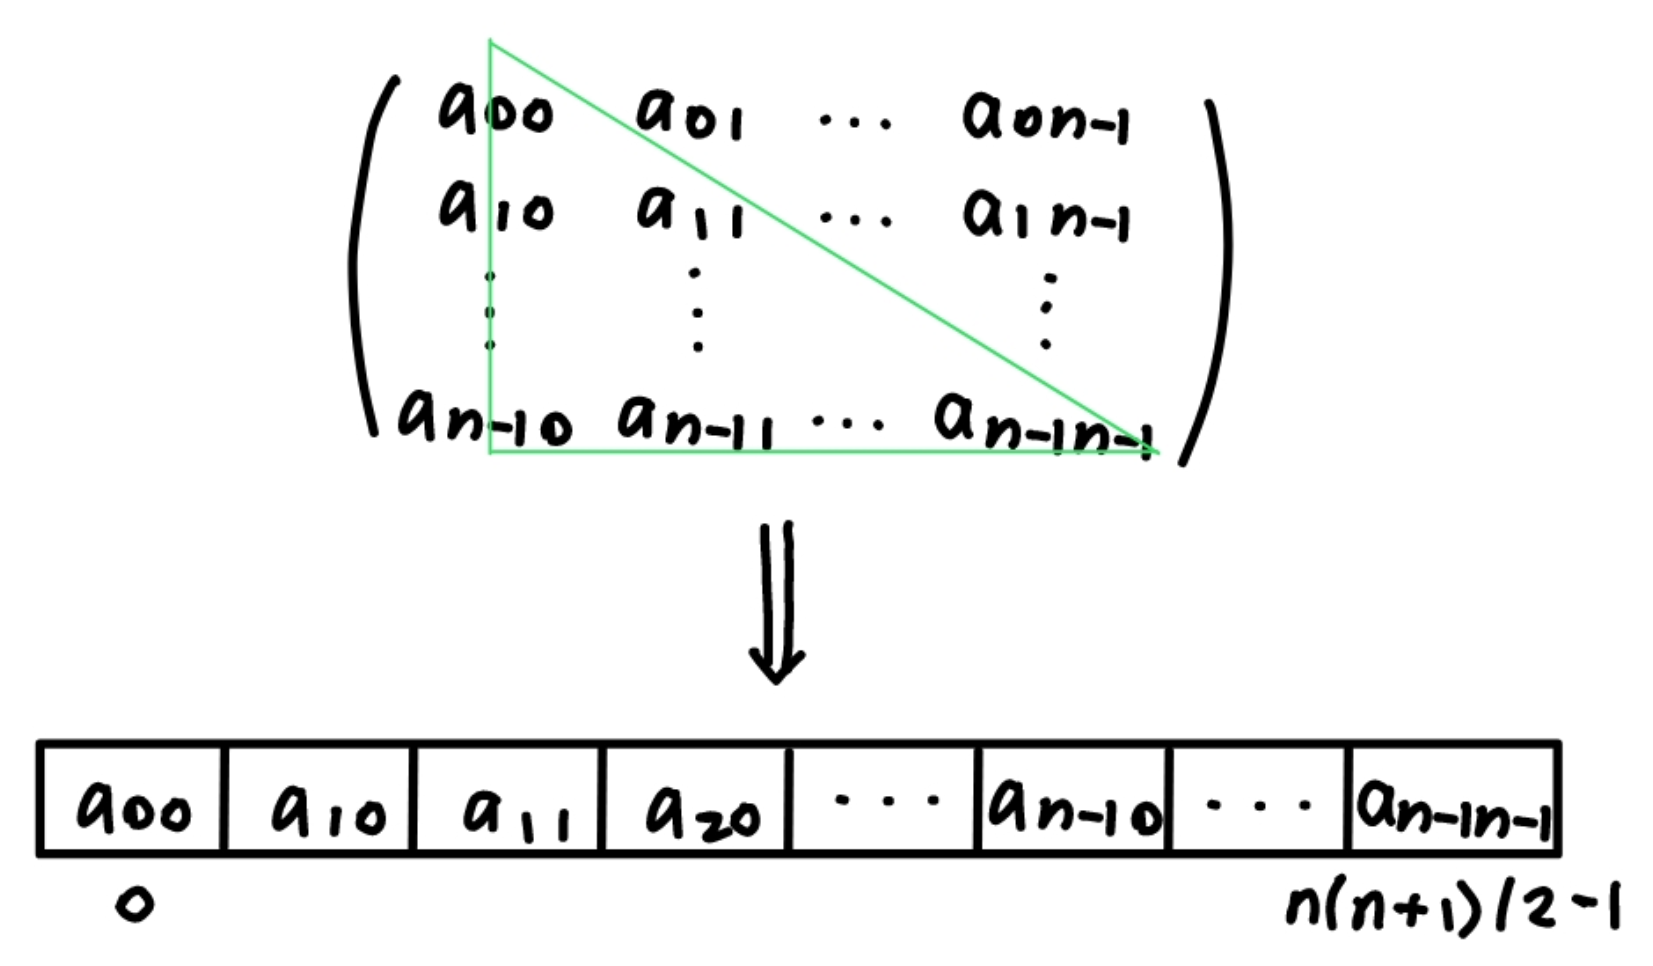 a00 a01 ... a0n-1
a10 a11 ... a1n-1
⋮ ⋮ ⋮
an-10 an-11 ... an-1n-1
a00 a10 a11 a20 ... an-10 ... an-1n-1
0 n(n+1)/2-1